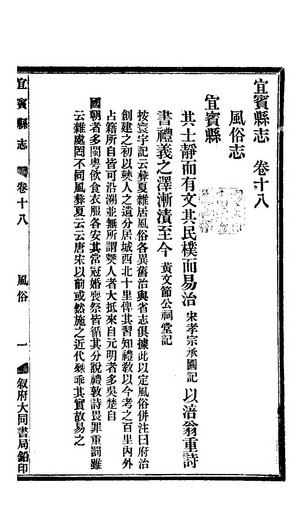 宜賓縣志 卷十八
風俗志
宜賓縣
其士靜而有文其民樸而易治 宋孝宗承國記 以涪翁重詩
書禮義之澤漸漬至今 黃文節公祠堂記
按寰宇記云彝夏雜居風俗各異舊治與省志俱據此以定風俗併注曰府治
創建之初以僰人之遺分居城西北十里俾其習知禮敎以今考之百里內外
占籍所自皆可沿溯並無所謂僰人者大抵來自元明者多吳楚自
國朝者多閩粵飲食衣服各安其常冠婚喪祭皆循其分說禮敦詩畏罪重罰雖
云雜處罔不同風彝夏云云唐宋以前或然施之近代殊乖其實故易之
宜賓縣志 卷十八 風俗 一 敘府大同書局鉛印